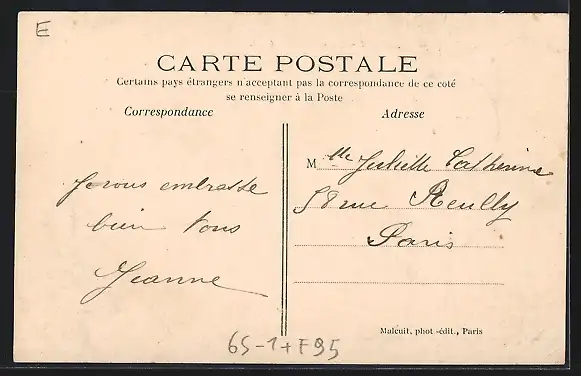 E
CARTE POSTALE
Certains pays étrangers n'acceptent pas la correspondance de ce coté
se renseigner à la Poste
Correspondance
Adresse
Je vous embrasse
bien tous
Jeanne
Mlle Juliette Catherine
58 rue Reuilly
Paris
Malcuit, phot.-édit., Paris
65-1+F95